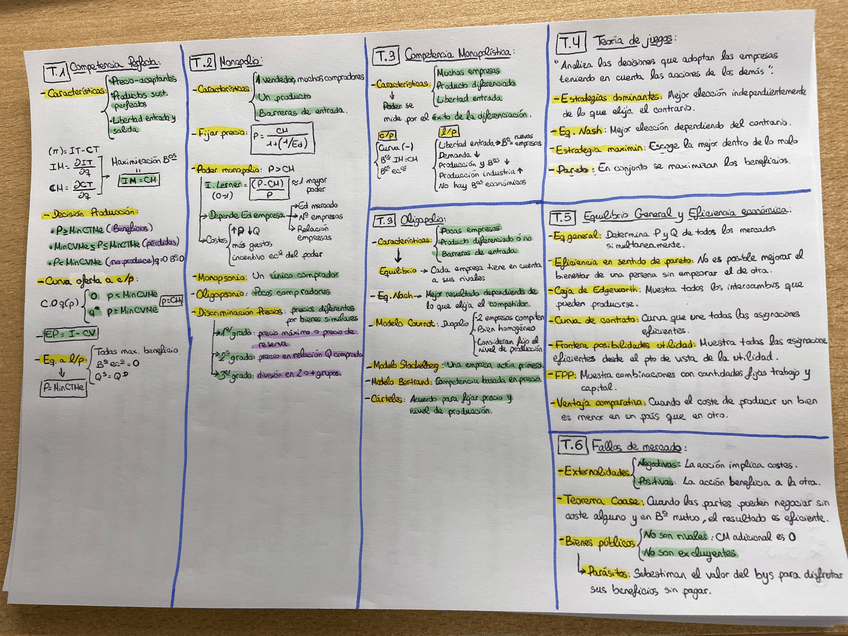 T.1 Competencia Perfecta:
- Características:
• Precio-aceptantes
• Productos sust. perfectos
• Libertad entrada y salida
(π) = IT-CT
IM = ∂IT/∂q
CM = ∂CT/∂q
Maximización Bºs
=
IM=CM
- Decisión Producción:
• P≥MinCTMe (Beneficios)
• MinCVMe≤P≤MinCTMe (pérdidas)
• P<MinCVMe (no produce) q=0 Bº=0
- Curva oferta a c/p:
C.Oq(p)
0 P<MinCVMe
q* P=MinCVMe
P=CM
- EP = I-CV
- Eq. a l/p:
Todas max. beneficio
Bº ecº = 0
Qˢ = Qᴰ
P=MinCTMe
T.2 Monopolio:
- Características
1 vendedor, muchos compradores
Un producto
Barreras de entrada.
- Fijar precio: P = CM / 1+(1/Ed)
- Poder monopolio: P>CM
I. Lerner = (P-CM) / P ≈ 1 mayor poder
(0-1)
Depende Ed empresa
Ed mercado
Nº empresas
Relación empresas
Costes
↑P ↓Q
más gastos
incentivo ecº del poder
- Monopsonio: Un único comprador
- Oligopsonio: Pocos compradores
- Discriminación Precios: precios diferentes
por bienes similares
1º grado: precio máximo o precio de
reserva
2º grado: precio en relación Q comprada
3º grado: división en 2 o + grupos.
T.3 Competencia Monopolística:
- Características:
Muchas empresas
Producto diferenciado
Libertad entrada
Poder se
mide por el éxito de la diferenciación.
c/p
Curva (-)
Bº IM=CM
Bº ecº
l/p
Libertad entrada → Bº nuevas empresas
Demanda ↓
Producción y Bº ↓
Producción industria ↑
No hay Bº económicos
T.3 Oligopolio:
- Características:
Pocas empresas
Producto diferenciado ó no
Barreras de entrada:
Equilibrio → Cada empresa tiene en cuenta
a sus rivales
- Eq. Nash → Mejor resultado dependiendo de
lo que elija el competidor.
- Modelo Cournot: Duopolio
- 2 empresas compiten
Bien homogéneo
- Consideran fijo el
nivel de producción
- Modelo Stackelberg: Una empresa actúa primero
- Modelo Bertrand: Competencia basada en precio
- Cárteles: Acuerdo para fijar precio y
nivel de producción.
T.4 Teoría de juegos:
"Analiza las decisiones que adoptan las empresas
teniendo en cuenta las acciones de la demás":
- Estrategias dominantes: Mejor elección independientemente
de lo que elija el contrario.
- Eq. Nash: Mejor elección dependiendo del contrario.
- Estrategia maximin: Escoge la mejor dentro de lo malo
- Pareto: En conjunto se maximizan los beneficios.
T.5 Equilibrio General y Eficiencia económica.
- Eq general: Determina P y Q de todos los mercados
simultaneamente.
- Eficiencia en sentido de pareto: No es posible mejorar el
bienestar de una persona sin empeorar el de otra.
- Caja de Edgeworth: Muestra todos los intercambios que
pueden producirse.
- Curva de contrato: Curva que une todas las asignaciones
eficientes.
- Frontera posibilidades utilidad: Muestra todas las asignaciones
eficientes desde el pto de vista de la utilidad.
- FPP: Muestra combinaciones con cantidades fijas trabajo y
capital.
- Ventaja comparativa: Cuando el coste de producir un bien
es menor en un país que en otro.
T.6 Fallos de mercado:
- Externalidades
Negativas: La acción implica costes.
Positivas: La acción beneficia a la otra.
- Teorema Coase: Cuando las partes pueden negociar sin
coste alguno y en Bº mutuo, el resultado es eficiente.
- Bienes públicos
No son rivales: CM adicional es 0
No son excluyentes
Parásitos: Subestiman el valor del bys para disfrutar
sus beneficios sin pagar.